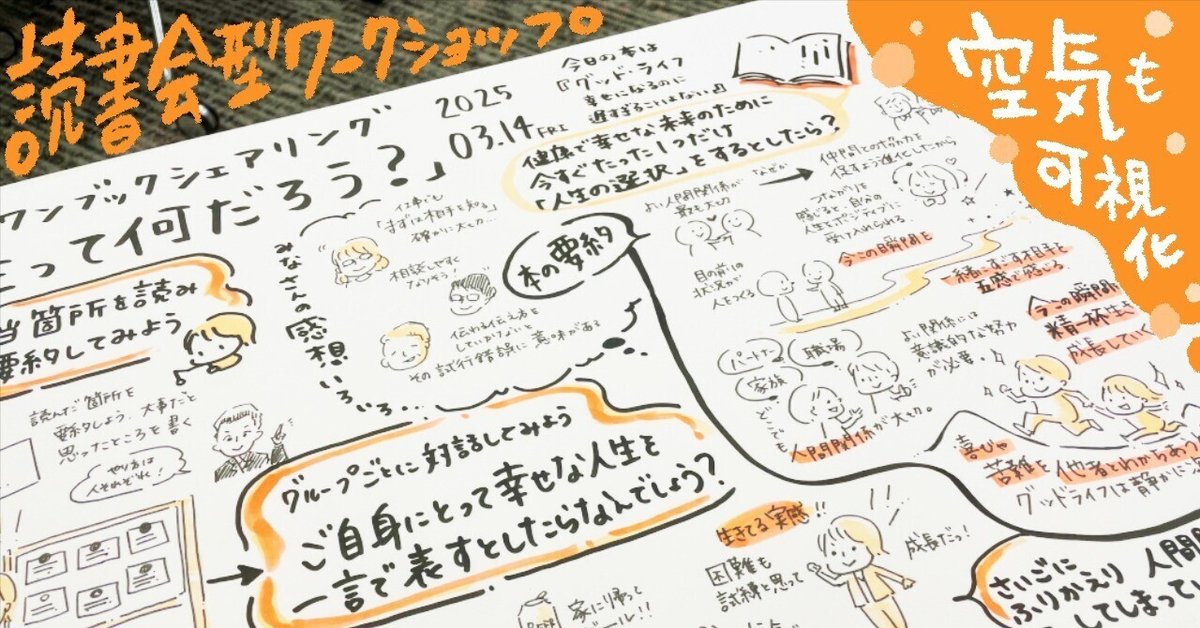 読書会型ワークショップ
空気も
可視化
ワンブックシェアリング
2025
03.14 FRI
って何だろう?」
今日の本は
『グッド・ライフ
幸せになるのに
遅すぎることはない』
健康で幸せな未来のために
今すぐたった1つだけ
「人生の選択」をするとしたら?
本の要約
よい人間関係が
最も大切
なぜか
仲間との協力を
促すよう進化したから
つながりを
感じると、自分の
人生をポジティブに
受け入れられる。
目の前の
状況が
人をつくる
今この瞬間を
一緒に過ごす相手を
五感で感じる
今この瞬間
精一杯生き
成長していく
パートナー
職場
家族
どこでも
人間関係が大切。
よい関係には
意識的な努力
が必要。
喜びや
苦難を他者とわかちあう
グッドライフは静かに
みなさんの感想いろいろ...
仕事でも
「まずは相手を知る」
確かに大切...
相談しやすく
なりそう!
伝わる伝え方を
していかないと
その試行錯誤に意味がある
当箇所を読み
要約してみよう
読んだ箇所を
要約しよう。大事だと
思ったところを書く
やり方は
人それぞれ!
グループごとに対話してみよう
ご自身にとって幸せな人生を
一言で表すとしたらなんでしょう?
生きてる実感!!
困難も
試練と思って
成長だっ!
家に帰って
ビール!!
さいごに
ふりかえり
人間
してしまって